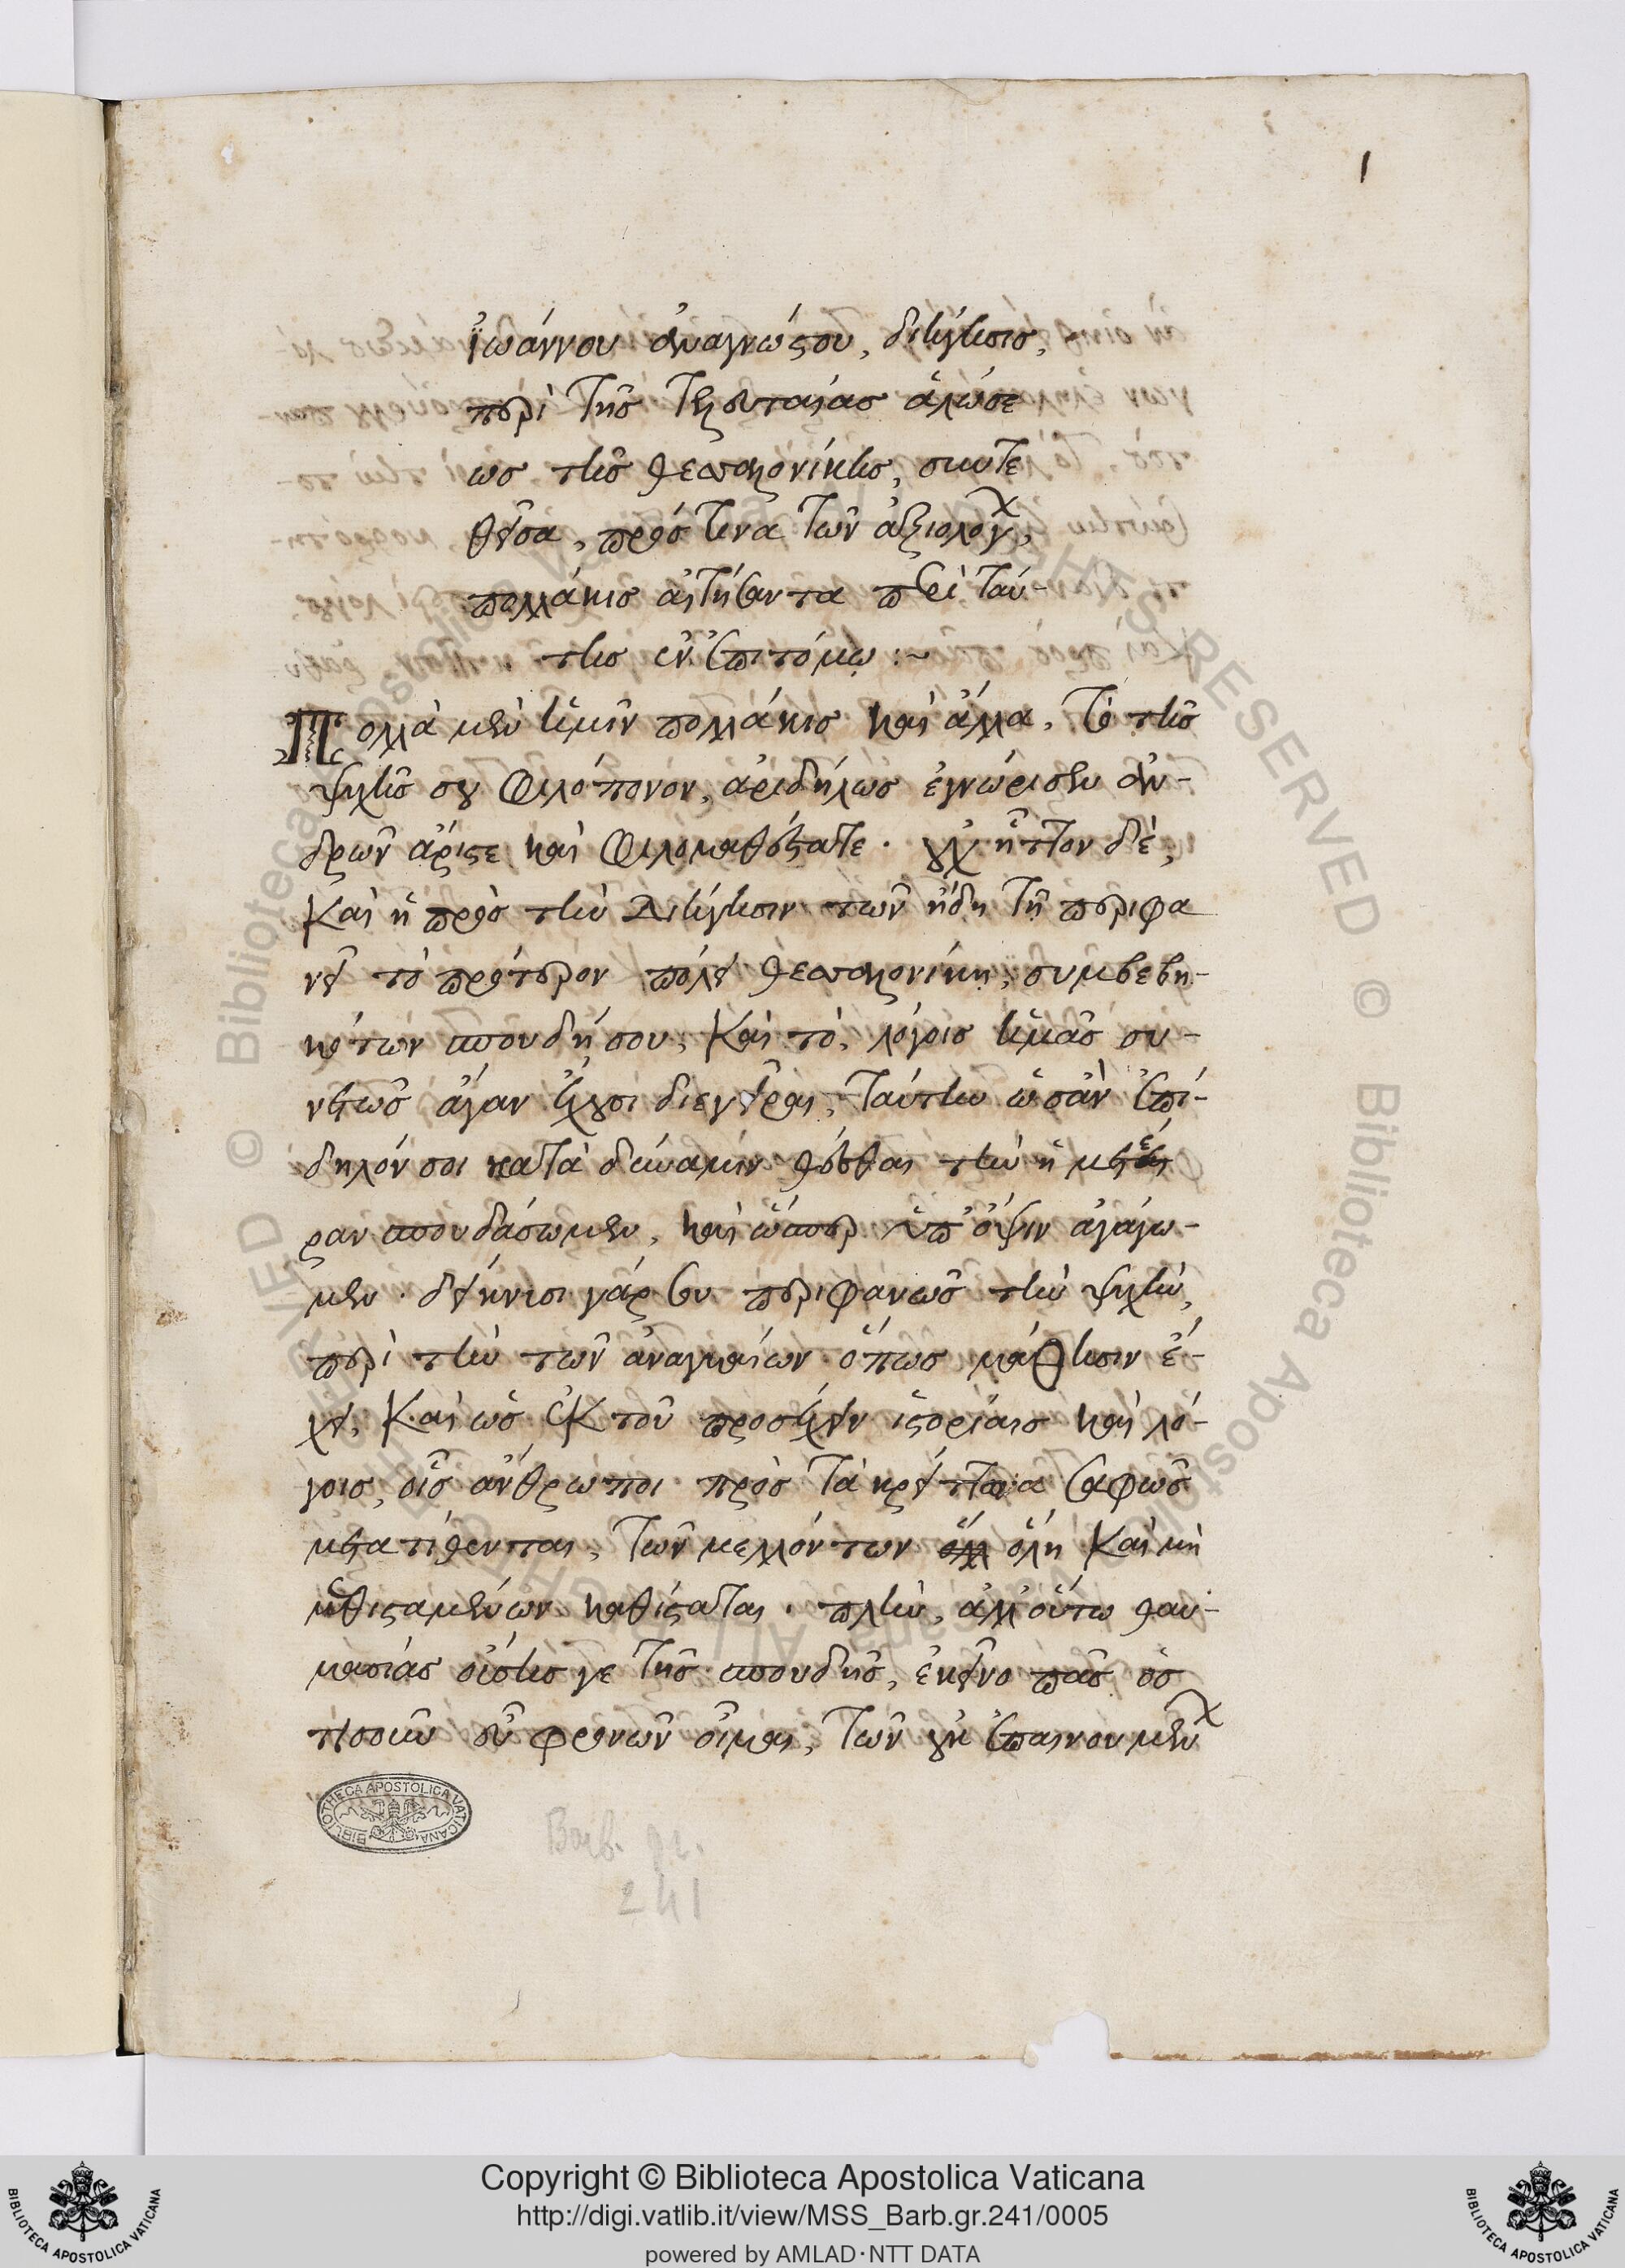 1
Ἰωάννου ἀναγνώστου, διήγησις,
περὶ τῆς τελευταίας ἁλώσε
ως τῆς θεσσαλονίκης, συντε
θεῖσα, πρός τινα τῶν ἀξιολόγων,
πολλάκις αἰτήσαντα περὶ ταύ-
της ἐν ἐπιτόμω :~
Πολλὰ μὲν ἡμῖν πολλάκις καὶ ἄλλα, τὸ τῆς
ψυχῆς σου φιλόπονον, ἀριδήλως ἐγνώρισεν ἀν-
δρῶν ἄριστε καὶ φιλομαθέστατε · οὐχ ἧττον δὲ,
καὶ ἡ πρὸς τὴν διήγησιν τῶν ἤδη τῇ περιφα
νεῖ τὸ πρότερον πόλει θεσσαλονίκη, συμβεβη-
κότων σπουδή σου, καὶ τὸ, λόγοις ἡμᾶς συ-
νετῶς ἄγαν ἔχουσι διεγεῖραι, ταύτην ὡσὰν ἐπί-
δηλόν σοι κατὰ δύναμιν θέσθαι τὴν ἡμετέ
ραν σπουδάσωμεν, καὶ ὥσπερ ὑπ' ὄψιν ἀγάγω-
μεν · δείκνυσι γὰρ εὖ περιφανῶς τὴν ψυχὴν,
περὶ τὴν τῶν ἀναγκαίων ὅπως μάθησιν ἔ-
χει, καὶ ὡς ἐκ τοῦ προσέχειν ἱστορίαις καὶ λό-
γοις, οἷς ἄνθρωποι πρὸς τὰ κρείττονα σαφῶς
μετατίθενται, τῶν μελλόντων ὅλη καὶ μὴ
καθισταμένων καθίσταται · πλὴν, ἀλλ' οὕτω θαυ-
μασίας οὔσης γε τῆς σπουδῆς, ἐκεῖνο πᾶς ὁσ
τισοῦν εὖ φρονῶν οἶμαι, τῶν οὐκ ἐπαινουμένων
BIBLIOTHECA APOSTOLICA VATICANA
Barb. gr.
241
Copyright © Biblioteca Apostolica Vaticana
http://digi.vatlib.it/view/MSS_Barb.gr.241/0005
powered by AMLAD·NTT DATA
BIBLIOTECA APOSTOLICA VATICANA
BIBLIOTECA APOSTOLICA VATICANA